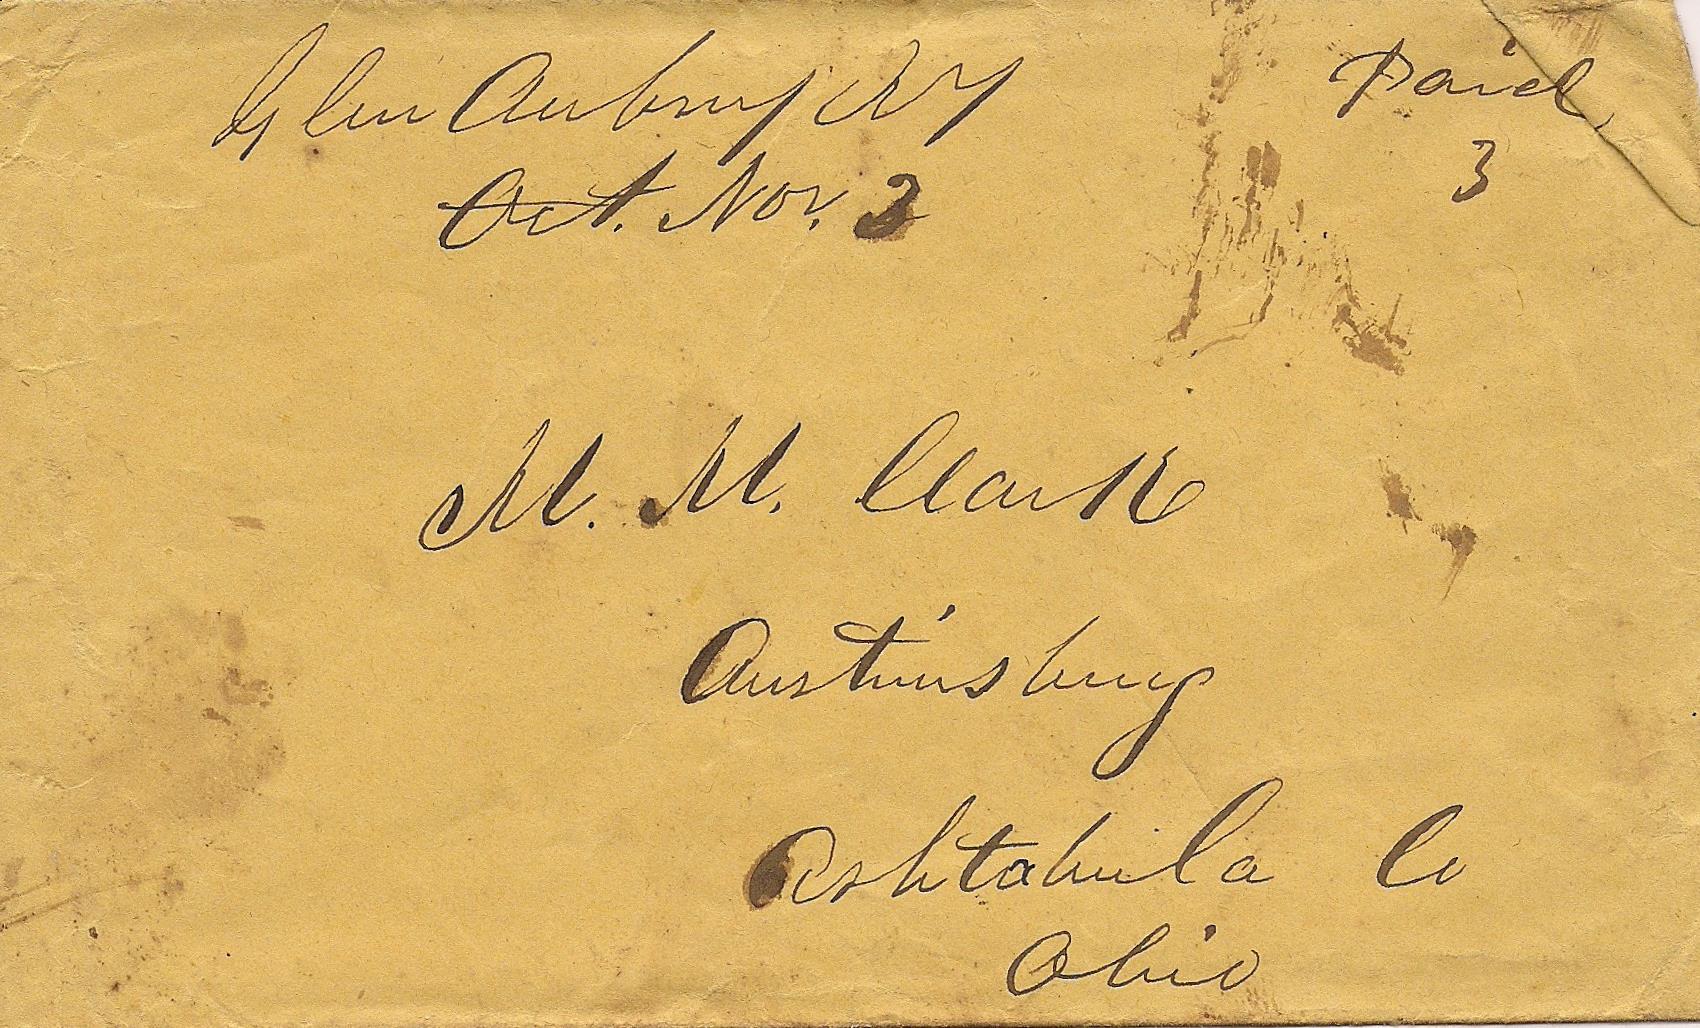 Glen Aubrey NY
Paid
3
Oct. Nov. 2
M. M. Clark
Austinsburg
Ashtabula Co
Ohio